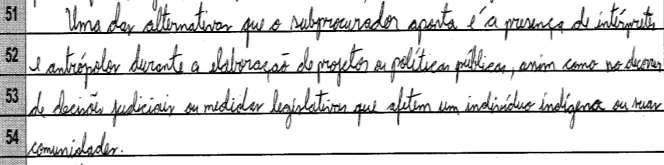 51 Uma das alternativas que o subprocurador aponta é a presença de intérpretes
52 e antropólos durante a elaboração de projetos ou políticas públicas, assim como no decorrer
53 de decisões judiciais ou medidas legislativas que afetem um indivíduo indígena ou suas
54 comunidades.